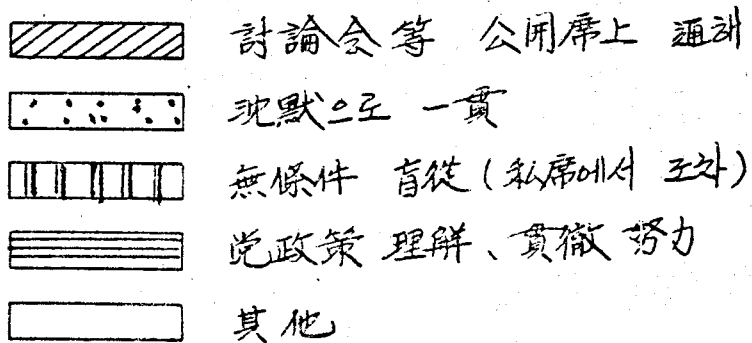 討論会等 公開席上 通해
沈默으로 一貫
無條件 盲從 (私席에서 조차)
党政策 理解、貫徹 努力
其他